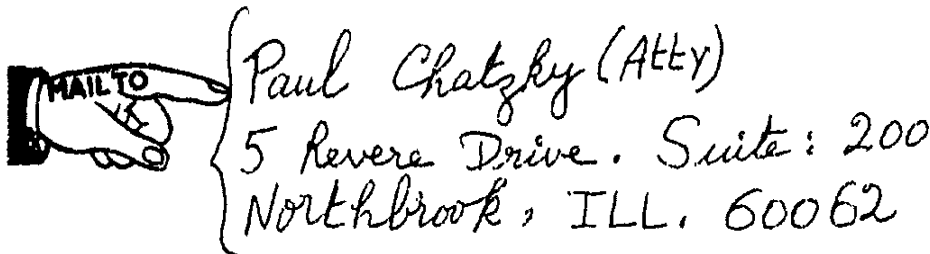 MAIL TO
Paul Chatzky (Atty)
5 Revere Drive. Suite: 200
Northbrook, ILL. 60062